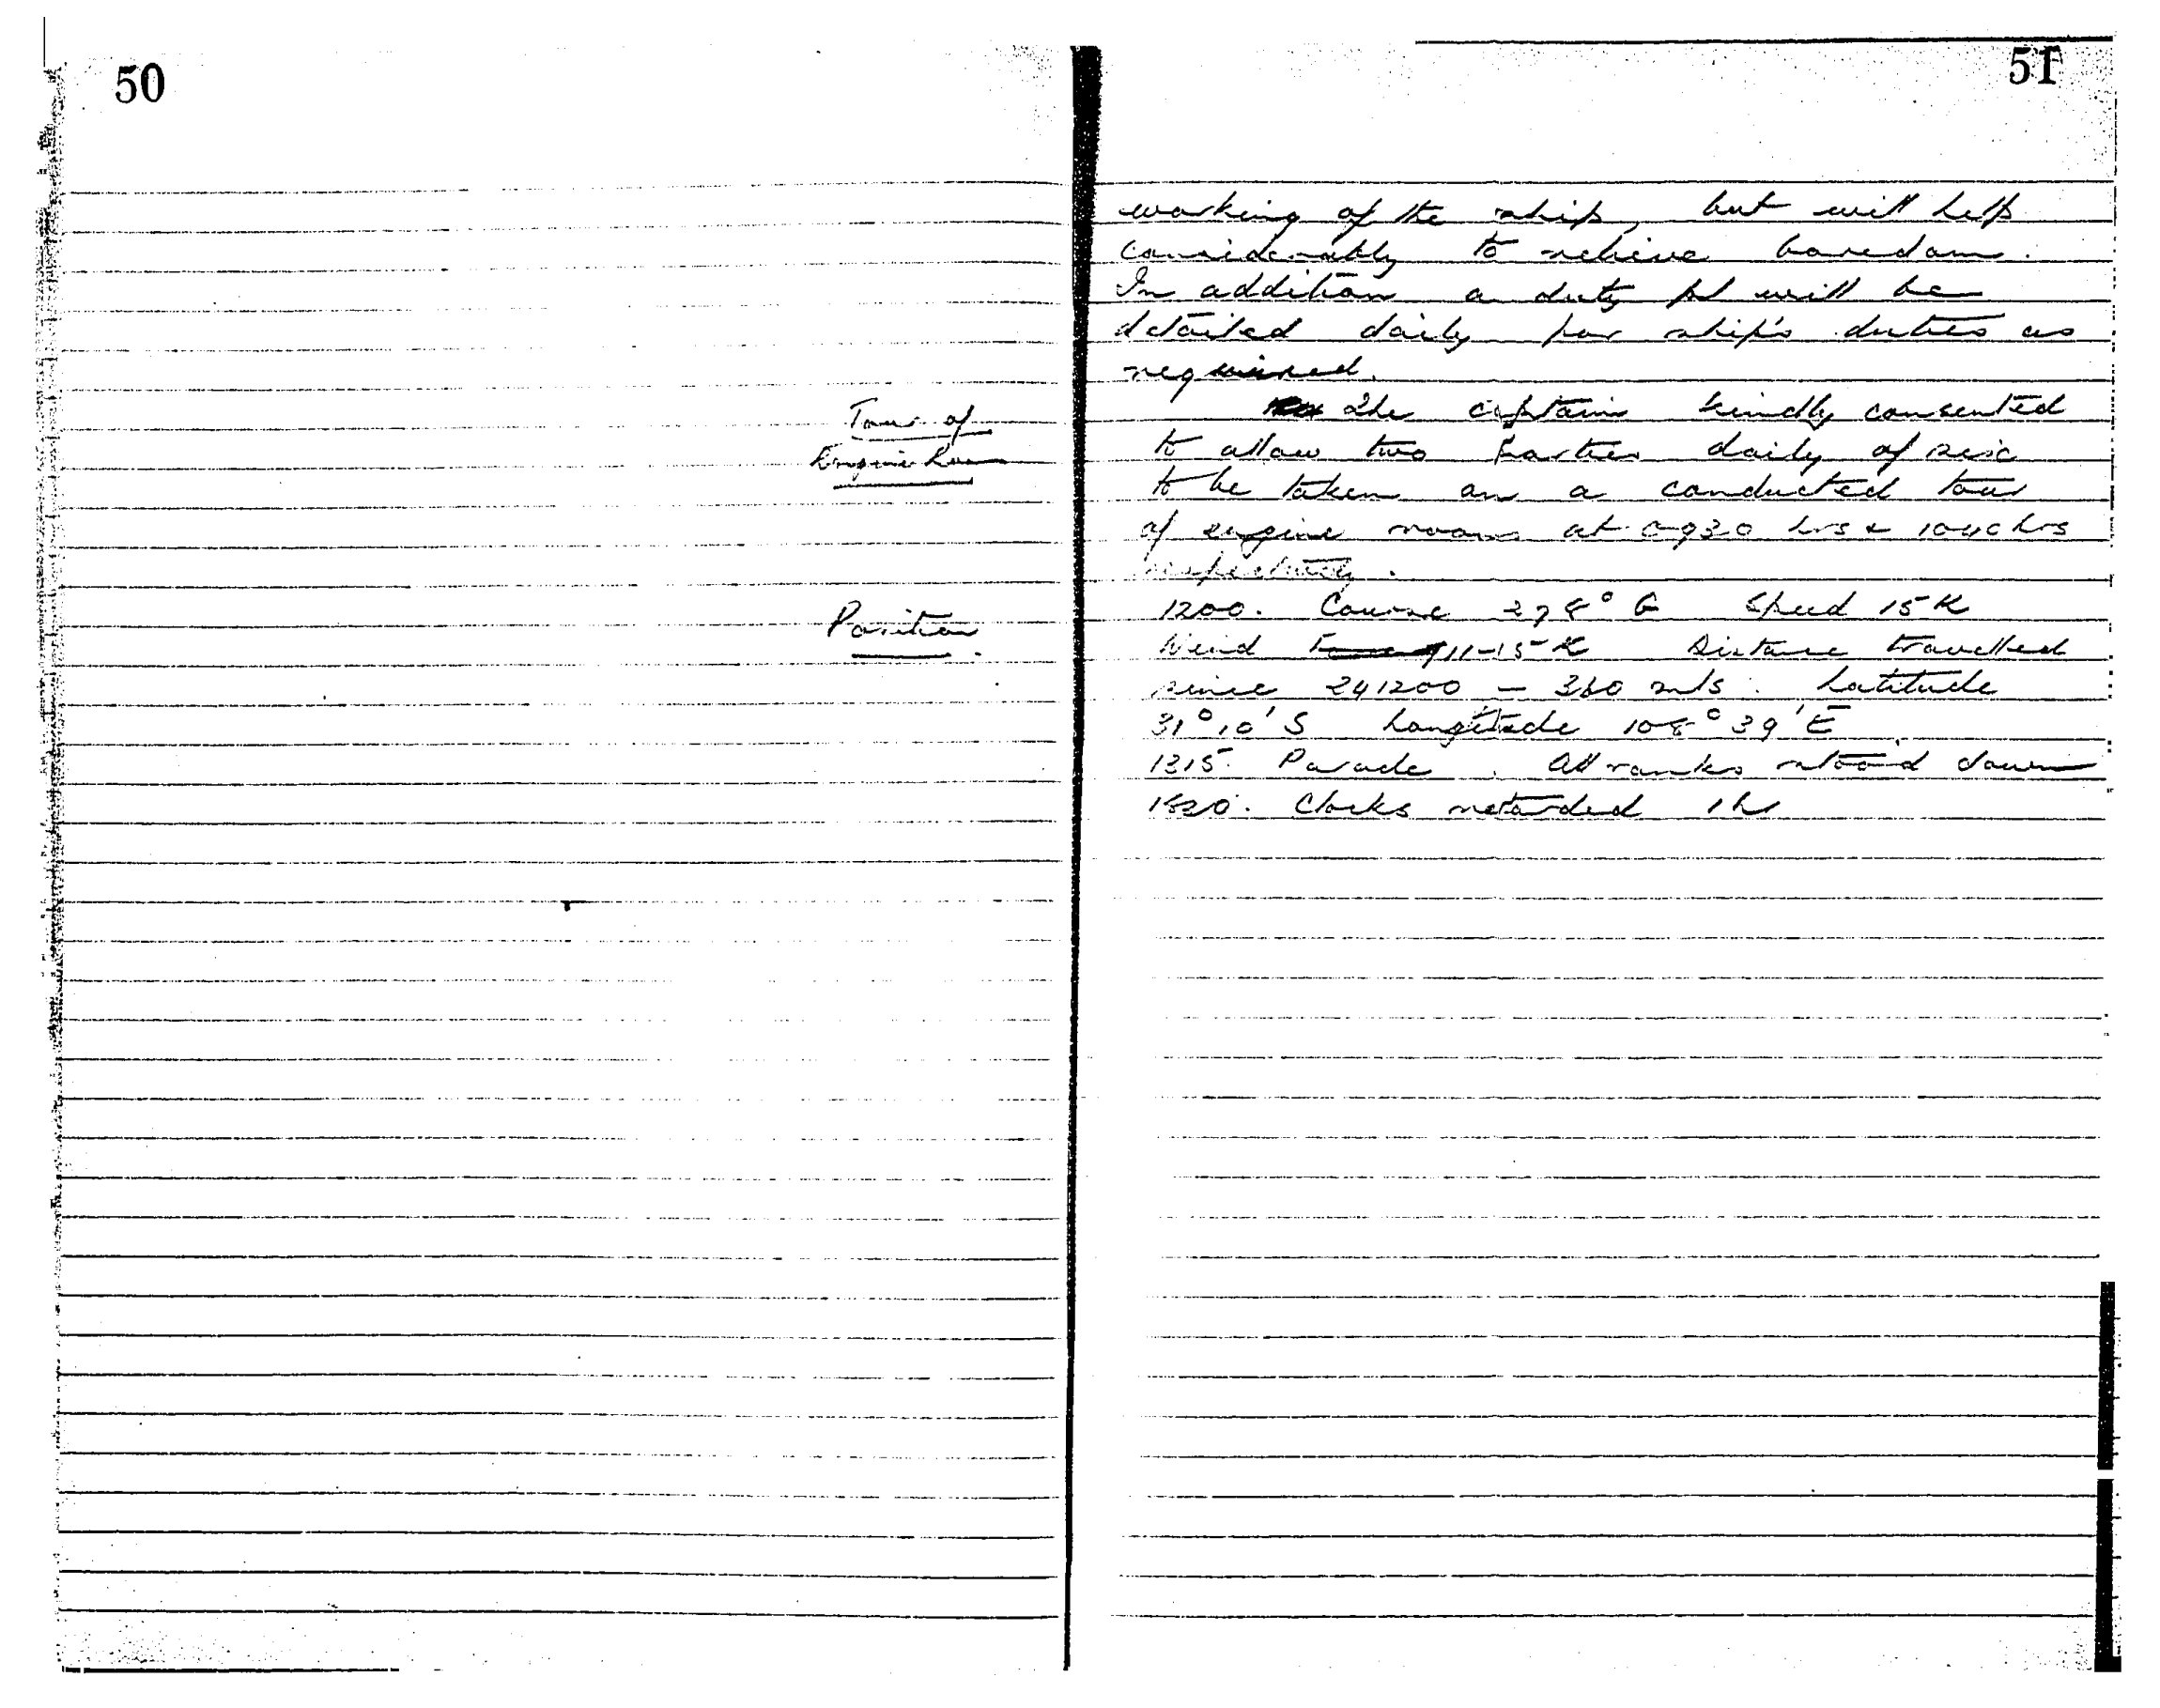 50
Tour of
Engine Room
Position.
51
working of the ship, but will help
considerably to relieve boredom.
In addition a duty pl will be
detailed daily for ship's duties as
required.
The captain kindly consented
to allow two parties daily of six
to be taken on a conducted tour
of engine rooms at 0930 hrs & 1040 hrs
respectively.
1200. Course 278° G Speed 15 K
Wind 11-15 K Distance travelled
since 241200 - 360 mls. Latitude
31° 10' S Longitude 108° 39' E.
1315. Parade. All ranks stood down
1820. Clocks retarded 1 hr